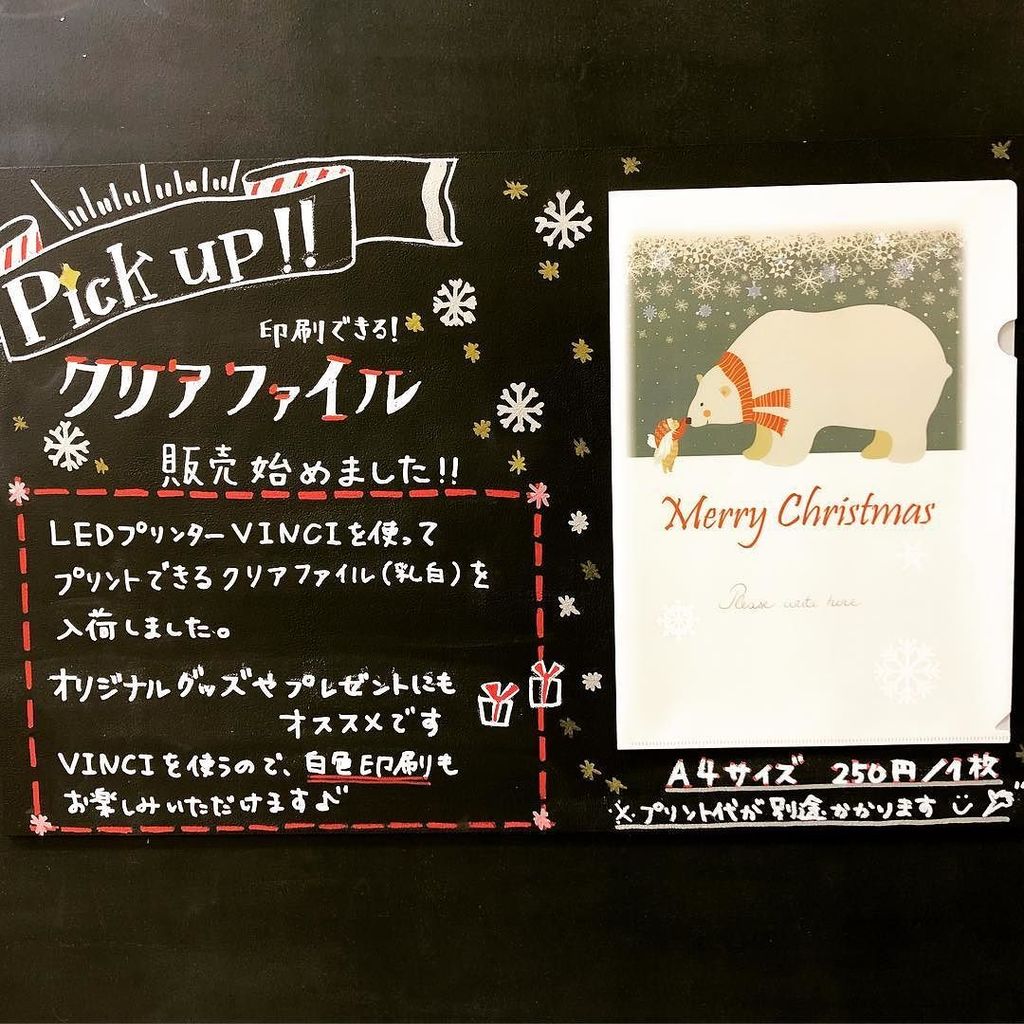 Pick up!!
印刷できる!
クリアファイル
販売始めました!!
LEDプリンターVINCIを使って
プリントできるクリアファイル(乳白)を
入荷しました。
オリジナルグッズやプレゼントにも
オススメです
VINCIを使うので、白色印刷も
お楽しみいただけます♪
Merry Christmas
Please write here
A4サイズ 250円/1枚
※プリント代が別途かかります